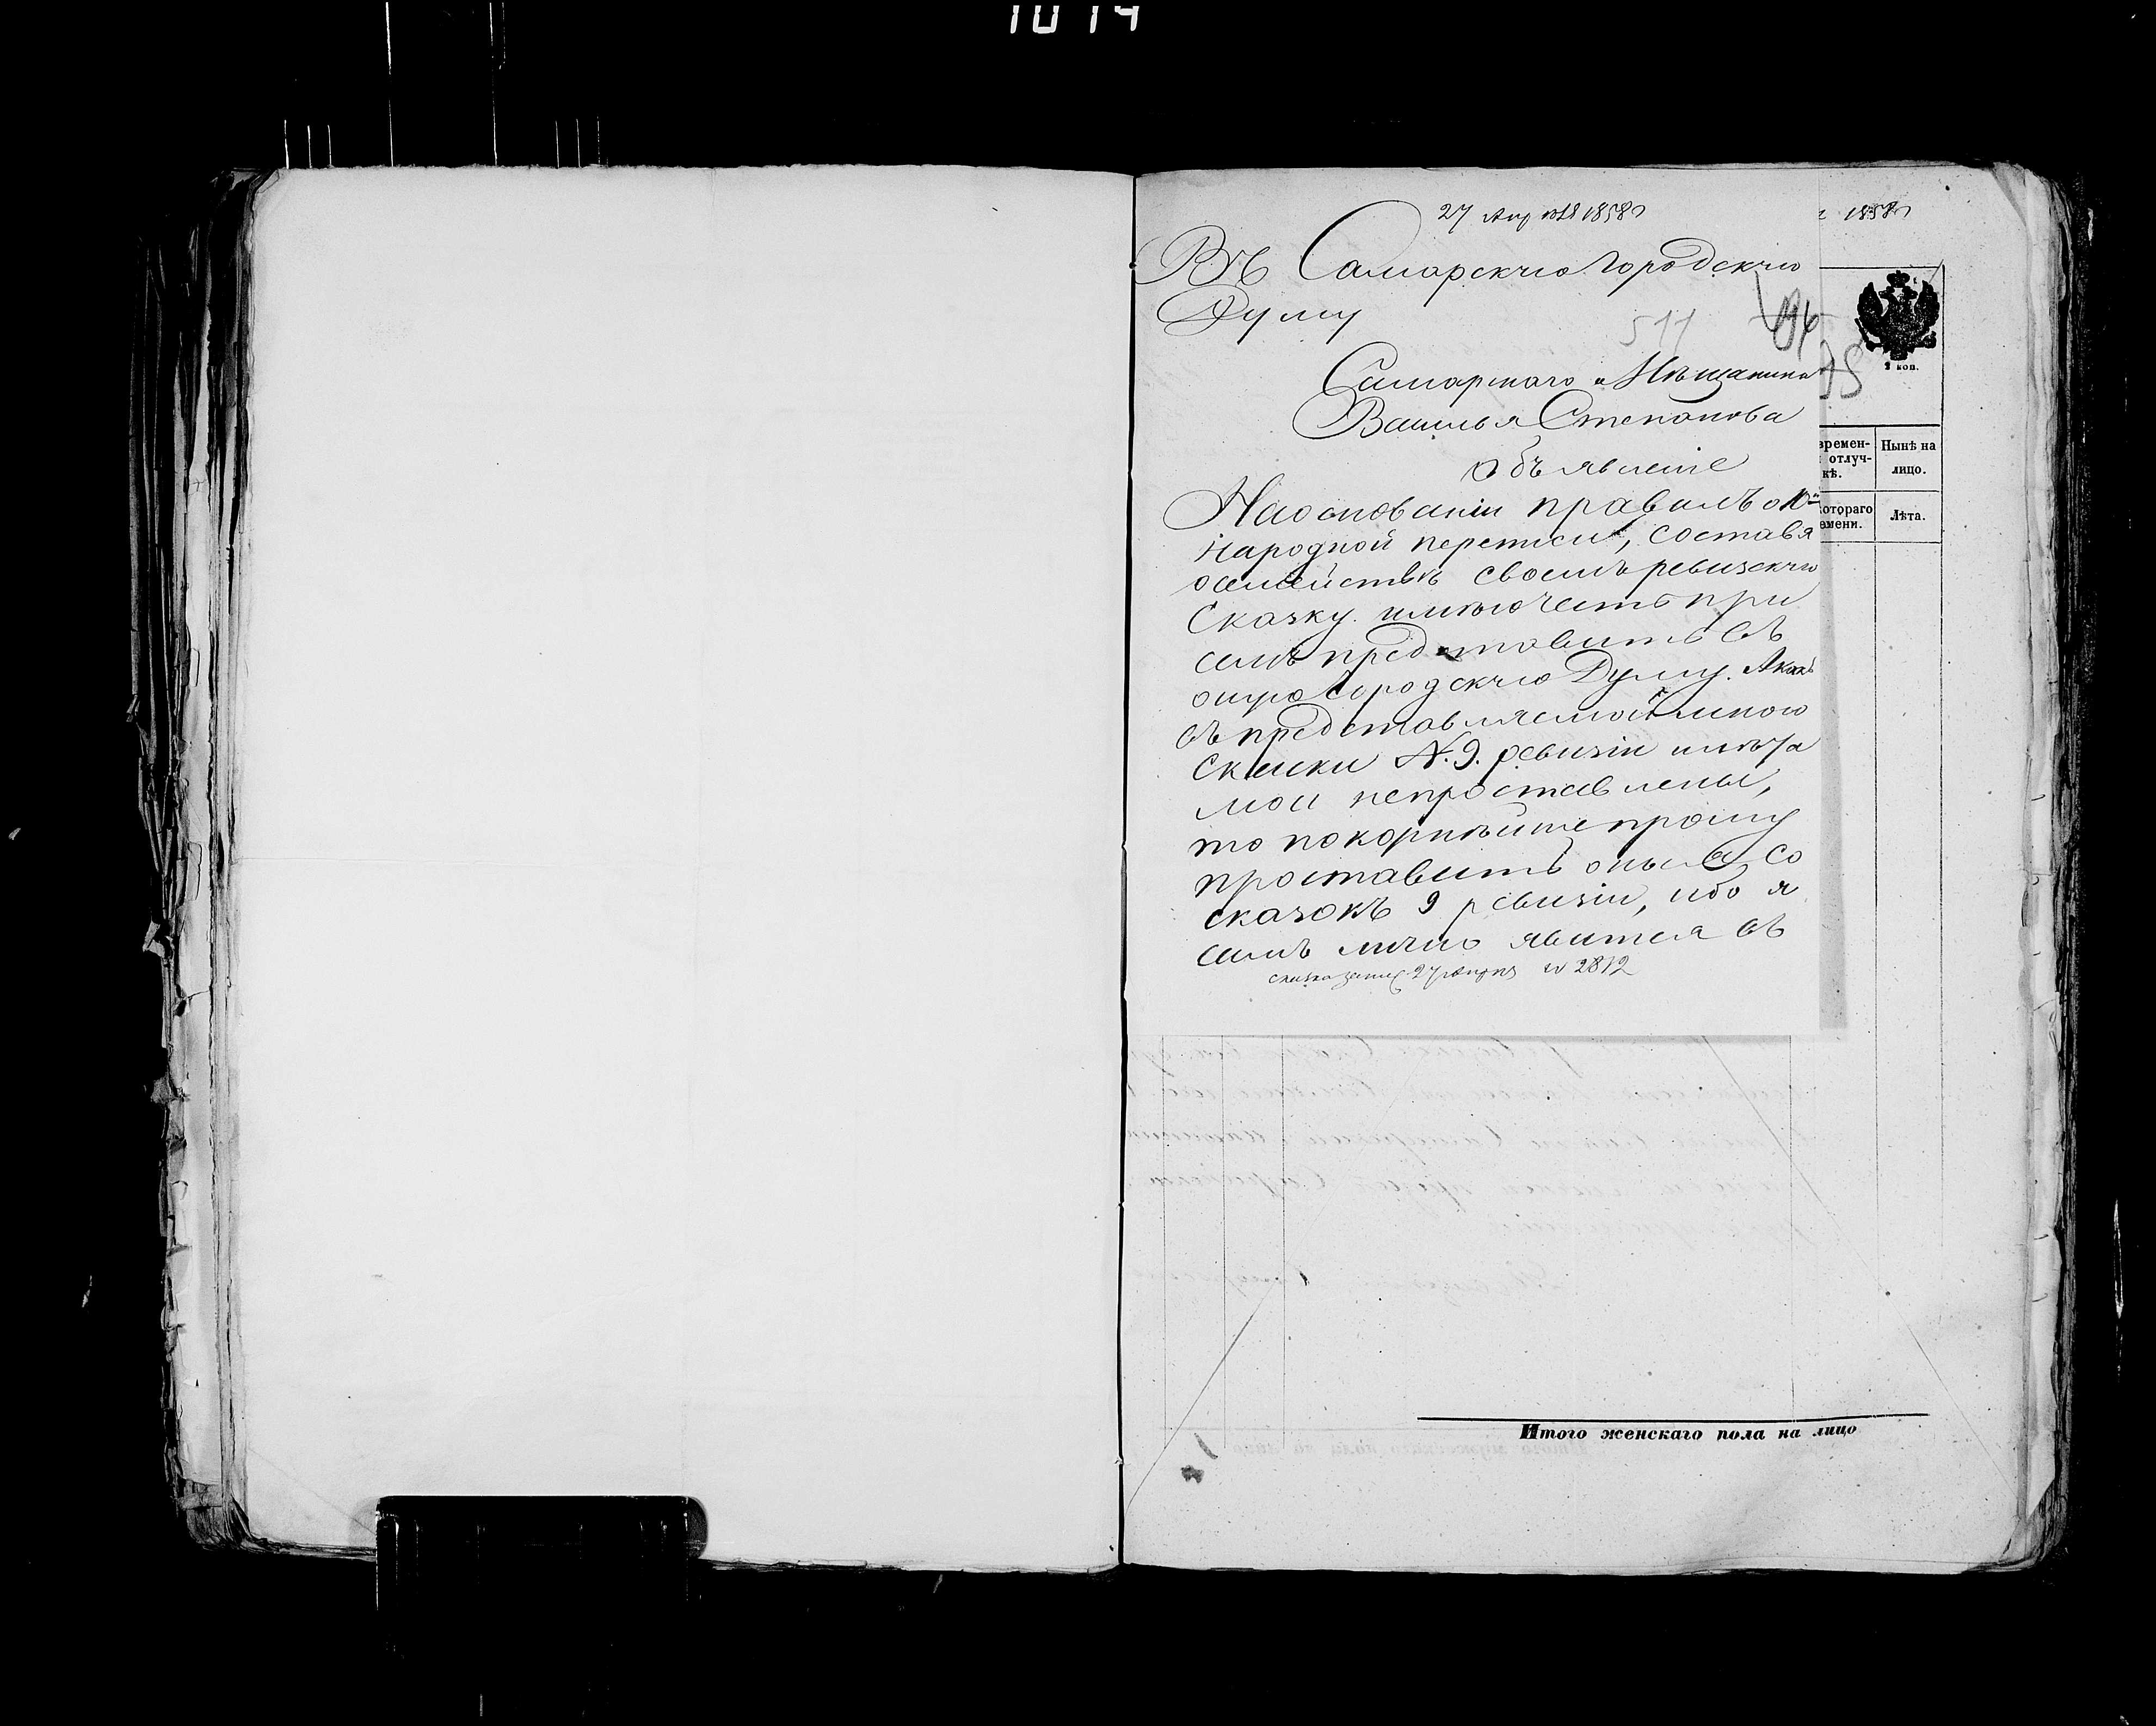 1014
27 Апрѣля 1858
1858
Въ Самарскую Городскую
Думу
511
2 коп.
Самарскаго Мѣщанина
Василья Степанова
времен-
отлуч-
кѣ.
Нынѣ на
лицо.
Объявленіе
котораго
емени.
Лѣта.
На основаніи правилъ о 10й
народной переписи, составя
о семействѣ своемъ ревизскую
Сказку имѣю честь при
семъ представить въ
оную Городскую Думу. А какъ
въ представляемой мною
Сказки №. 9. ревизіи лѣта
мои непроставлены,
то покорнѣйше прошу
проставить оныя со
сказокъ 9 ревизіи, ибо я
самъ лично явится въ
27 апрѣ № 2812
Итого женскаго пола на лицо